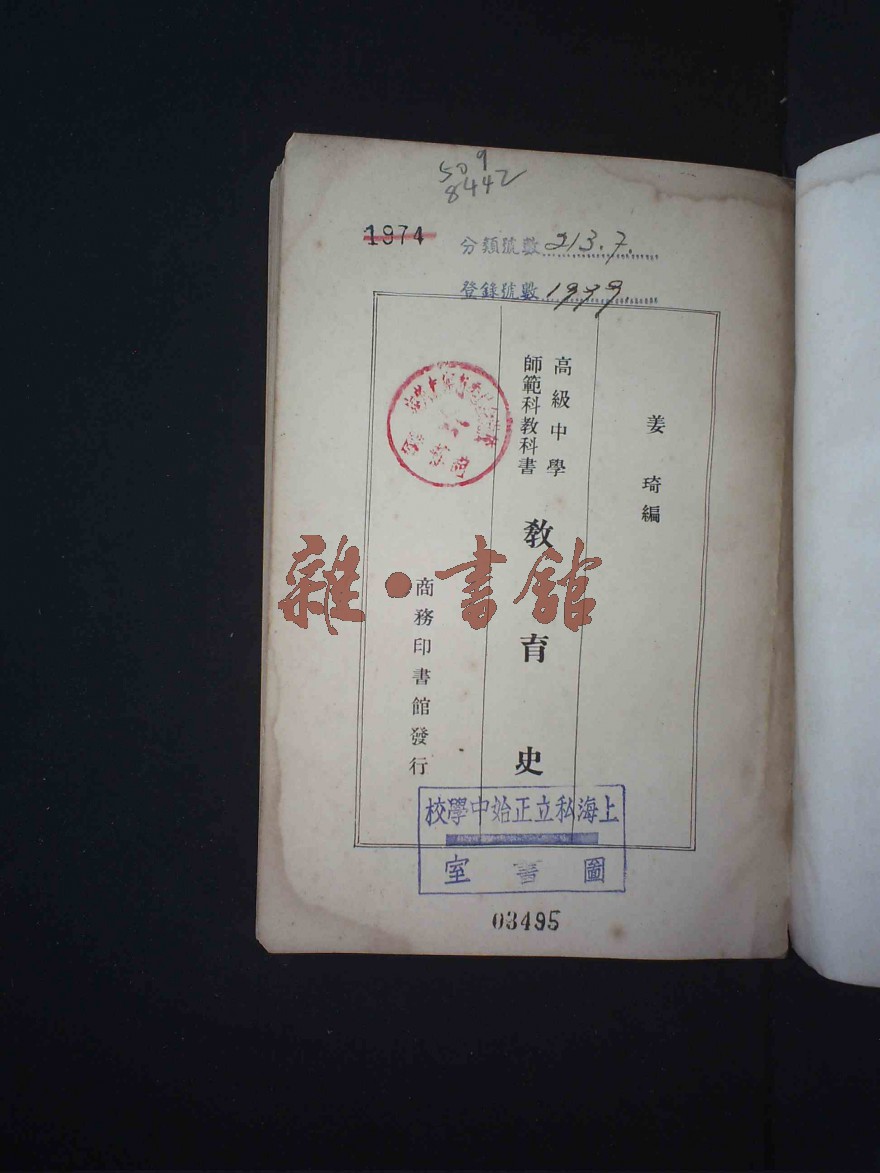 509
8442
1974
分類號數 213.7.
登錄號數 1999
姜琦編
高級中學
師範科教科書
教育史
商務印書館發行
雜·書館
上海私立正始中學校
圖書室
03495